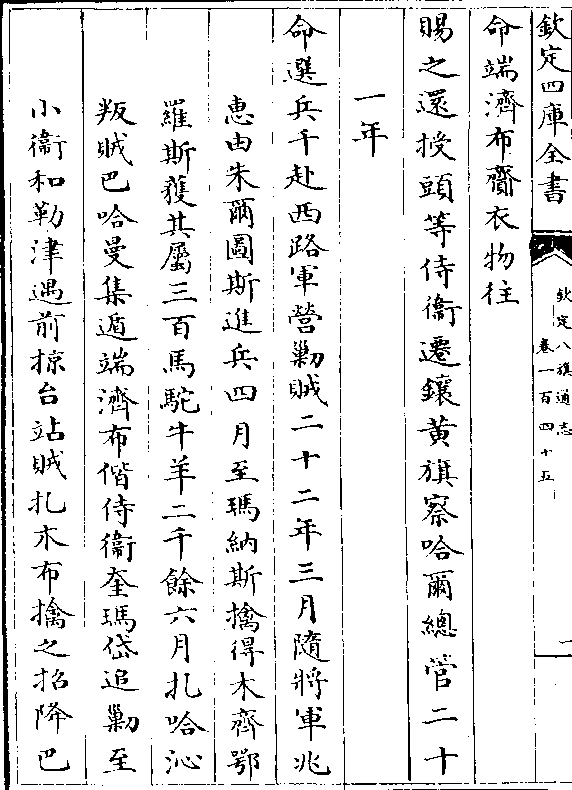 欽定四庫全書
欽定八旗通志
卷一百四十五
一
命端濟布齎衣物往
賜之還授頭等侍衞遷鑲黄旗察哈爾總管二十
一年
命選兵千赴西路軍營勦賊二十二年三月隨將軍兆
惠由朱爾圖斯進兵四月至瑪納斯擒得木齊鄂
羅斯獲其屬三百馬駝牛羊二千餘六月扎哈沁
叛賊巴哈曼集遁端濟布偕侍衞奎瑪岱追勦至
小衞和勒津遇前掠台站賊扎木布擒之招降巴